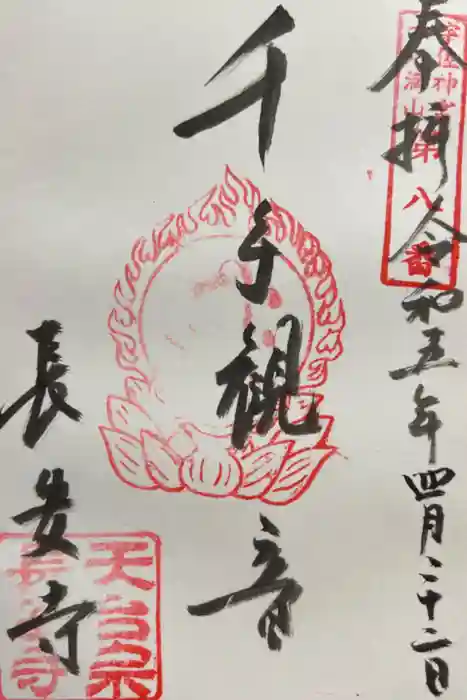 奉拝 令和五年四月二十二日
宇佐神宮
六郷山
第八番
千手観音
長安寺
天台宗
長安寺